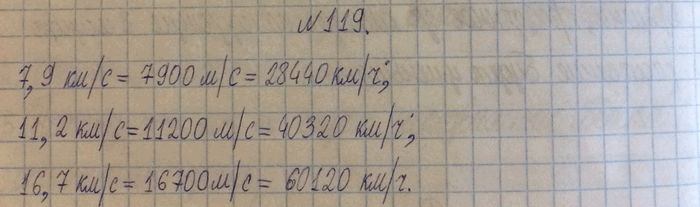 №119.
7,9 км/с = 7900 м/с = 28440 км/ч;
11,2 км/с = 11200 м/с = 40320 км/ч;
16,7 км/с = 16700 м/с = 60120 км/ч.